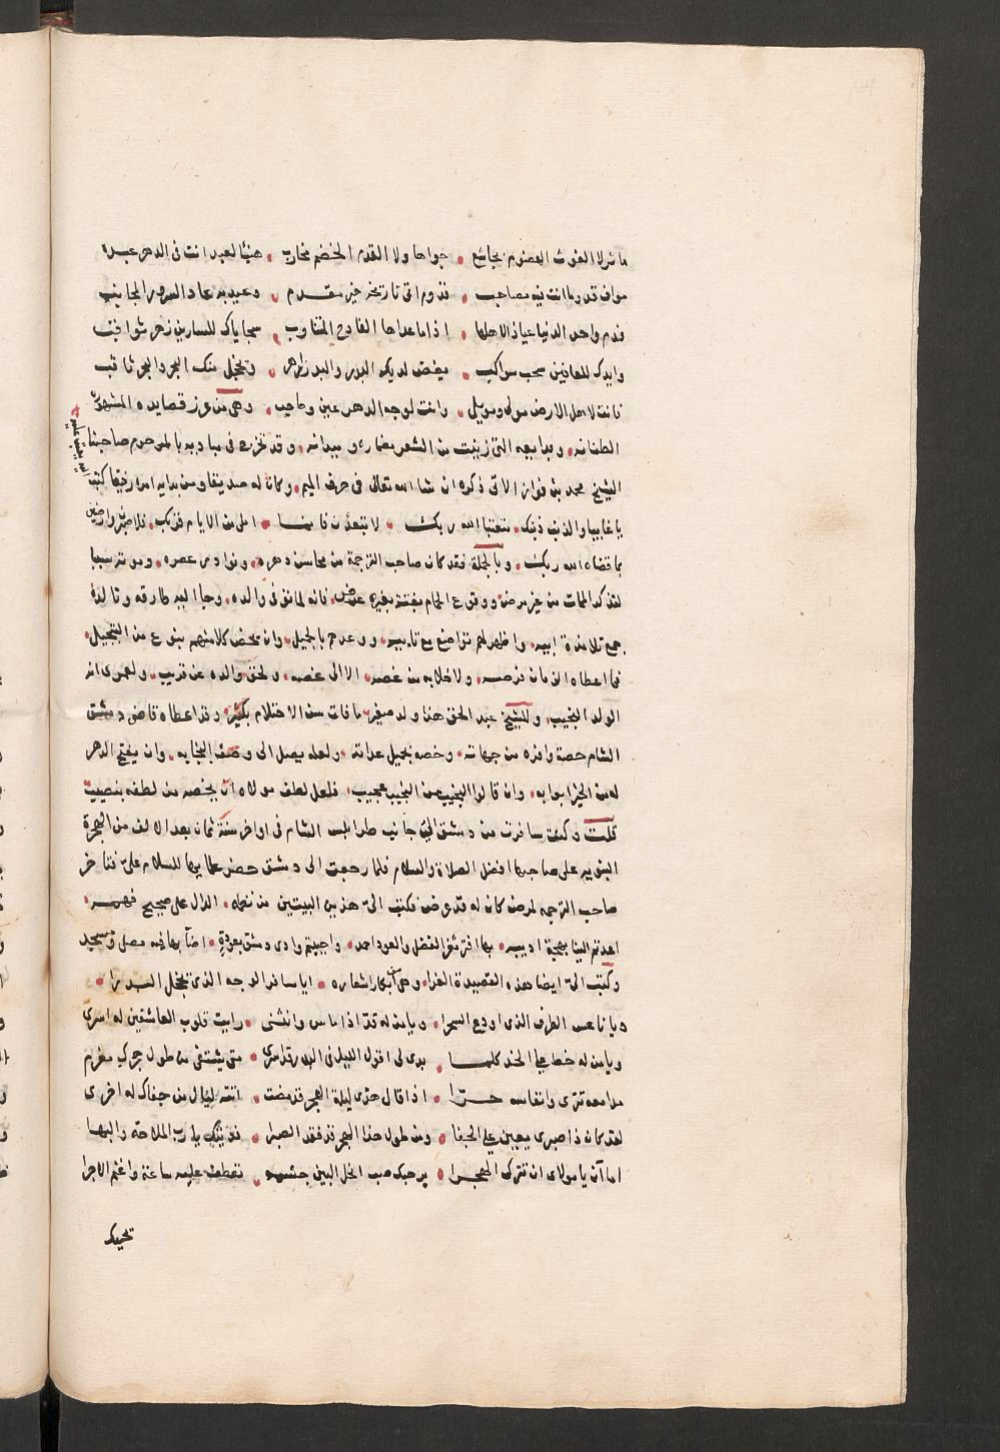 ما نزلا الغوث العضوم بجاشع • جواها ولا القدم الخضم محارب • هنيا لعيد انت فى الدهر عيده
مواف قدوما انت فيه مصاحب • قدوم اتى تاريخه خير مقدم • وعيد به عاد السرور المجانب
فدم واحد الدنيا عياذا لاهلها • اذا ما عداها الفادح المتناوب • سجاياك للسارين زهر ثواقب
وايدك للعافين سحب سواكب • يغض لديك البدر والبدر زاهر • ويخجل منك البحر والبحر ثاقب
فانت لاهل الارض مولى وموئل • وانت لوجه الدهر عين وحاجب • وهى من غرر قصايده المشهورة
الطنانه • وبدايعه التى زينت من الشعر مضماره وميدانه • وقد تخرج فى مباديه بالمرحوم صاحبنا
الشيخ محمد بن فواز الاتى ذكره ان شا الله تعالى فى حرف الميم • وكانا له صديقا ومن بداية امره رفيقا كتب
يا غايبا والذنب ذنبك • متعتبا الله ربك • لا تبعدن فانما • املى من الايام قربك • فلاصبرن وارضين
بما قضاه الله ربك • وبالجملة فقد كان صاحب الترجمة من محاسن دهره • ونوادر عصره • وموته سببا
لتذكر الممات من غير مرض ووقوع الحمام بغتة بغير عرض • فانه لما توفى والده • وجا اليه طارفه وتالده
جمع تلامذة ابيه • واظهر لهم تواضع مع تاديبه • ووعدهم بالجميل • وان يخص كلا منهم بنوع من التبجيل •
فما اعطاه الزمان فرصه • ولا خلا به من غصه • الا الى غصه • ولحق والده عن قريب • ولعمرى انه
الولد النجيب • وللشيخ عبد الحق هذا ولد صغير ما فات سن الاحتلام بكثير • وقد اعطاه قاضى دمشق
الشام حصة وافره من جهاته • وخصه بجميل عداته • ولعله يصل الى وصف النجابه • وان يفتح الدهر
له من الخير ابوابه • وان قالوا النجيب من النجيب عجيب • فلعل لطف مولاه ان يخصه من لطفه بنصيب
قلت وكنت سافرت من دمشق الى جانب طرابلس الشام فى اواخر سنة ثمان بعد الالف من الهجرة
النبويه على صاحبها افضل الصلاة والسلام فلما رجعت الى دمشق حضر علمايها للسلام على فتاخر
صاحب الترجمه لمرض كان له قد عرض فكتب الى هذين البيتين من نظمه • الدال على صحيح فهمه •
اعدتم الينا بهجة ادبيه • بها افتر ثغر الفضل والعود احمد • واجبيتم وادى دمشق بعودة • اضا بها فيه مصلى ومسجد
وكتب الى ايضا هذه القصيدة الغرا • وهى من ابكار اشعاره • ايا سافر الوجه الذى يخجل البدرا •
ويا ناعس الطرف الذى اودع السحرا • ويا من له قد اذا ماس وانثنى • رايت قلوب العاشقين له اسرى
ويا من له خط على الخد كلما • بدى لى اقول الليل فى اليوم قد اسرى • متى يشتفى من طول هجرك مغرم
مدامعه تترى وانفاسه حرا • اذا قال هذى ليلة الهجر قد مضت • اتته ليال من جفاك له اخرى
لقد كان ذا صبر يعين على الجفا • ومن طول هذا الهجر قد فقد الصبرا • فديتك يا رب الملاحة والبها
اما آن يا مولاى ان تترك الهجرا • يرحبك صب انحل البين جسمه • تعطف عليه ساعة واغنم الاجرا
تحيك